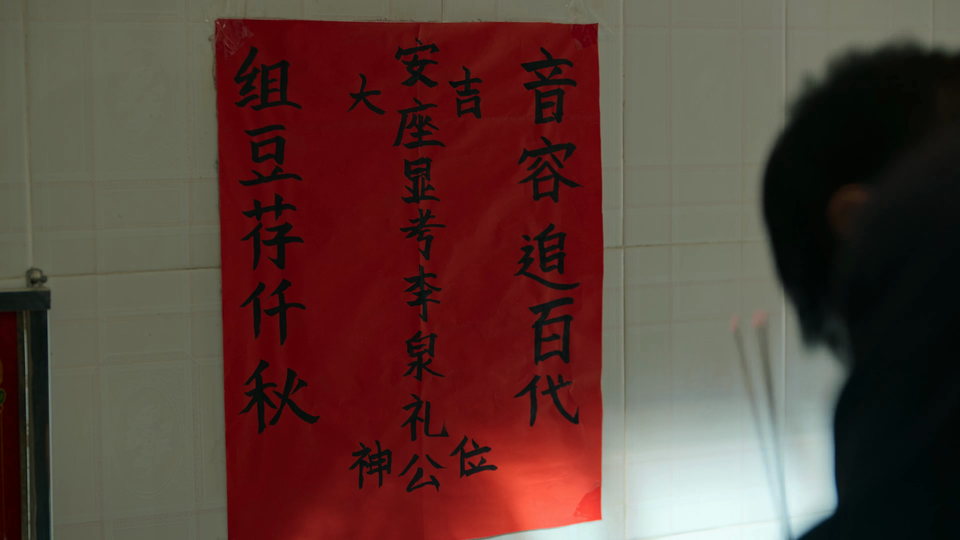 音容追百代
大吉
安座显考李泉礼公
神位
组豆荐仟秋